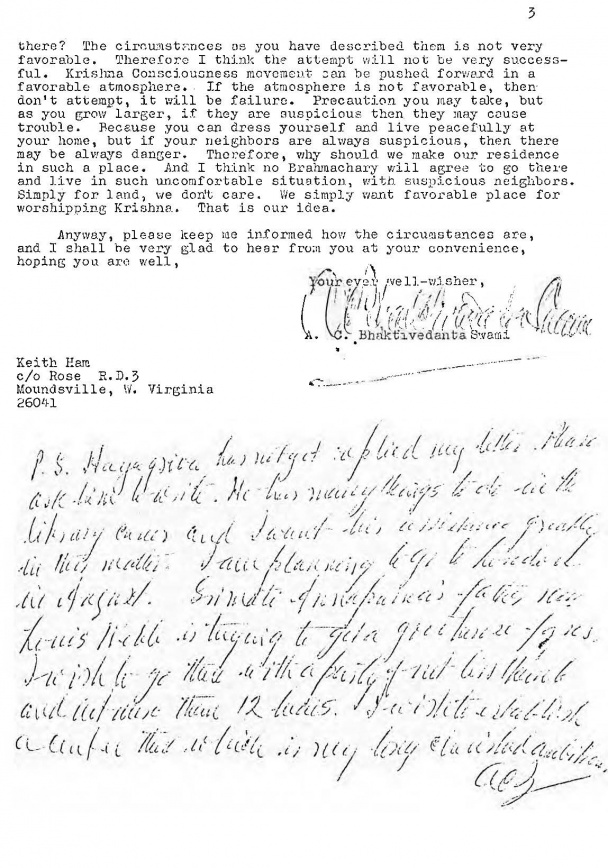 3
there? The circumstances as you have described them is not very
favorable. Therefore I think the attempt will not be very success-
ful. Krishna Consciousness movement can be pushed forward in a
favorable atmosphere. If the atmosphere is not favorable, then
don't attempt, it will be failure. Precaution you may take, but
as you grow larger, if they are suspicious then they may cause
trouble. Because you can dress yourself and live peacefully at
your home, but if your neighbors are always suspicious, then there
may be always danger. Therefore, why should we make our residence
in such a place. And I think no Brahmachary will agree to go there
and live in such uncomfortable situation, with suspicious neighbors.
Simply for land, we don't care. We simply want favorable place for
worshipping Krishna. That is our idea.
Anyway, please keep me informed how the circumstances are,
and I shall be very glad to hear from you at your convenience,
hoping you are well,
Your ever well-wisher,
A. C. Bhaktivedanta Swami
Keith Ham
c/o Rose R.D.3
Moundsville, W. Virginia
26041
P.S. Hayagriva has not yet replied my letter. Please
ask him to write. He has many things to do in the
literary and I want his assistance greatly
in this matter. I am planning to go to London
in August. Srimati Annapurna's father
is trying to give a house for us.
I wish to go there with a party of not less than 6
and not more than 12 heads. I wish to establish
a center there which is my long cherished ambition.
ACB